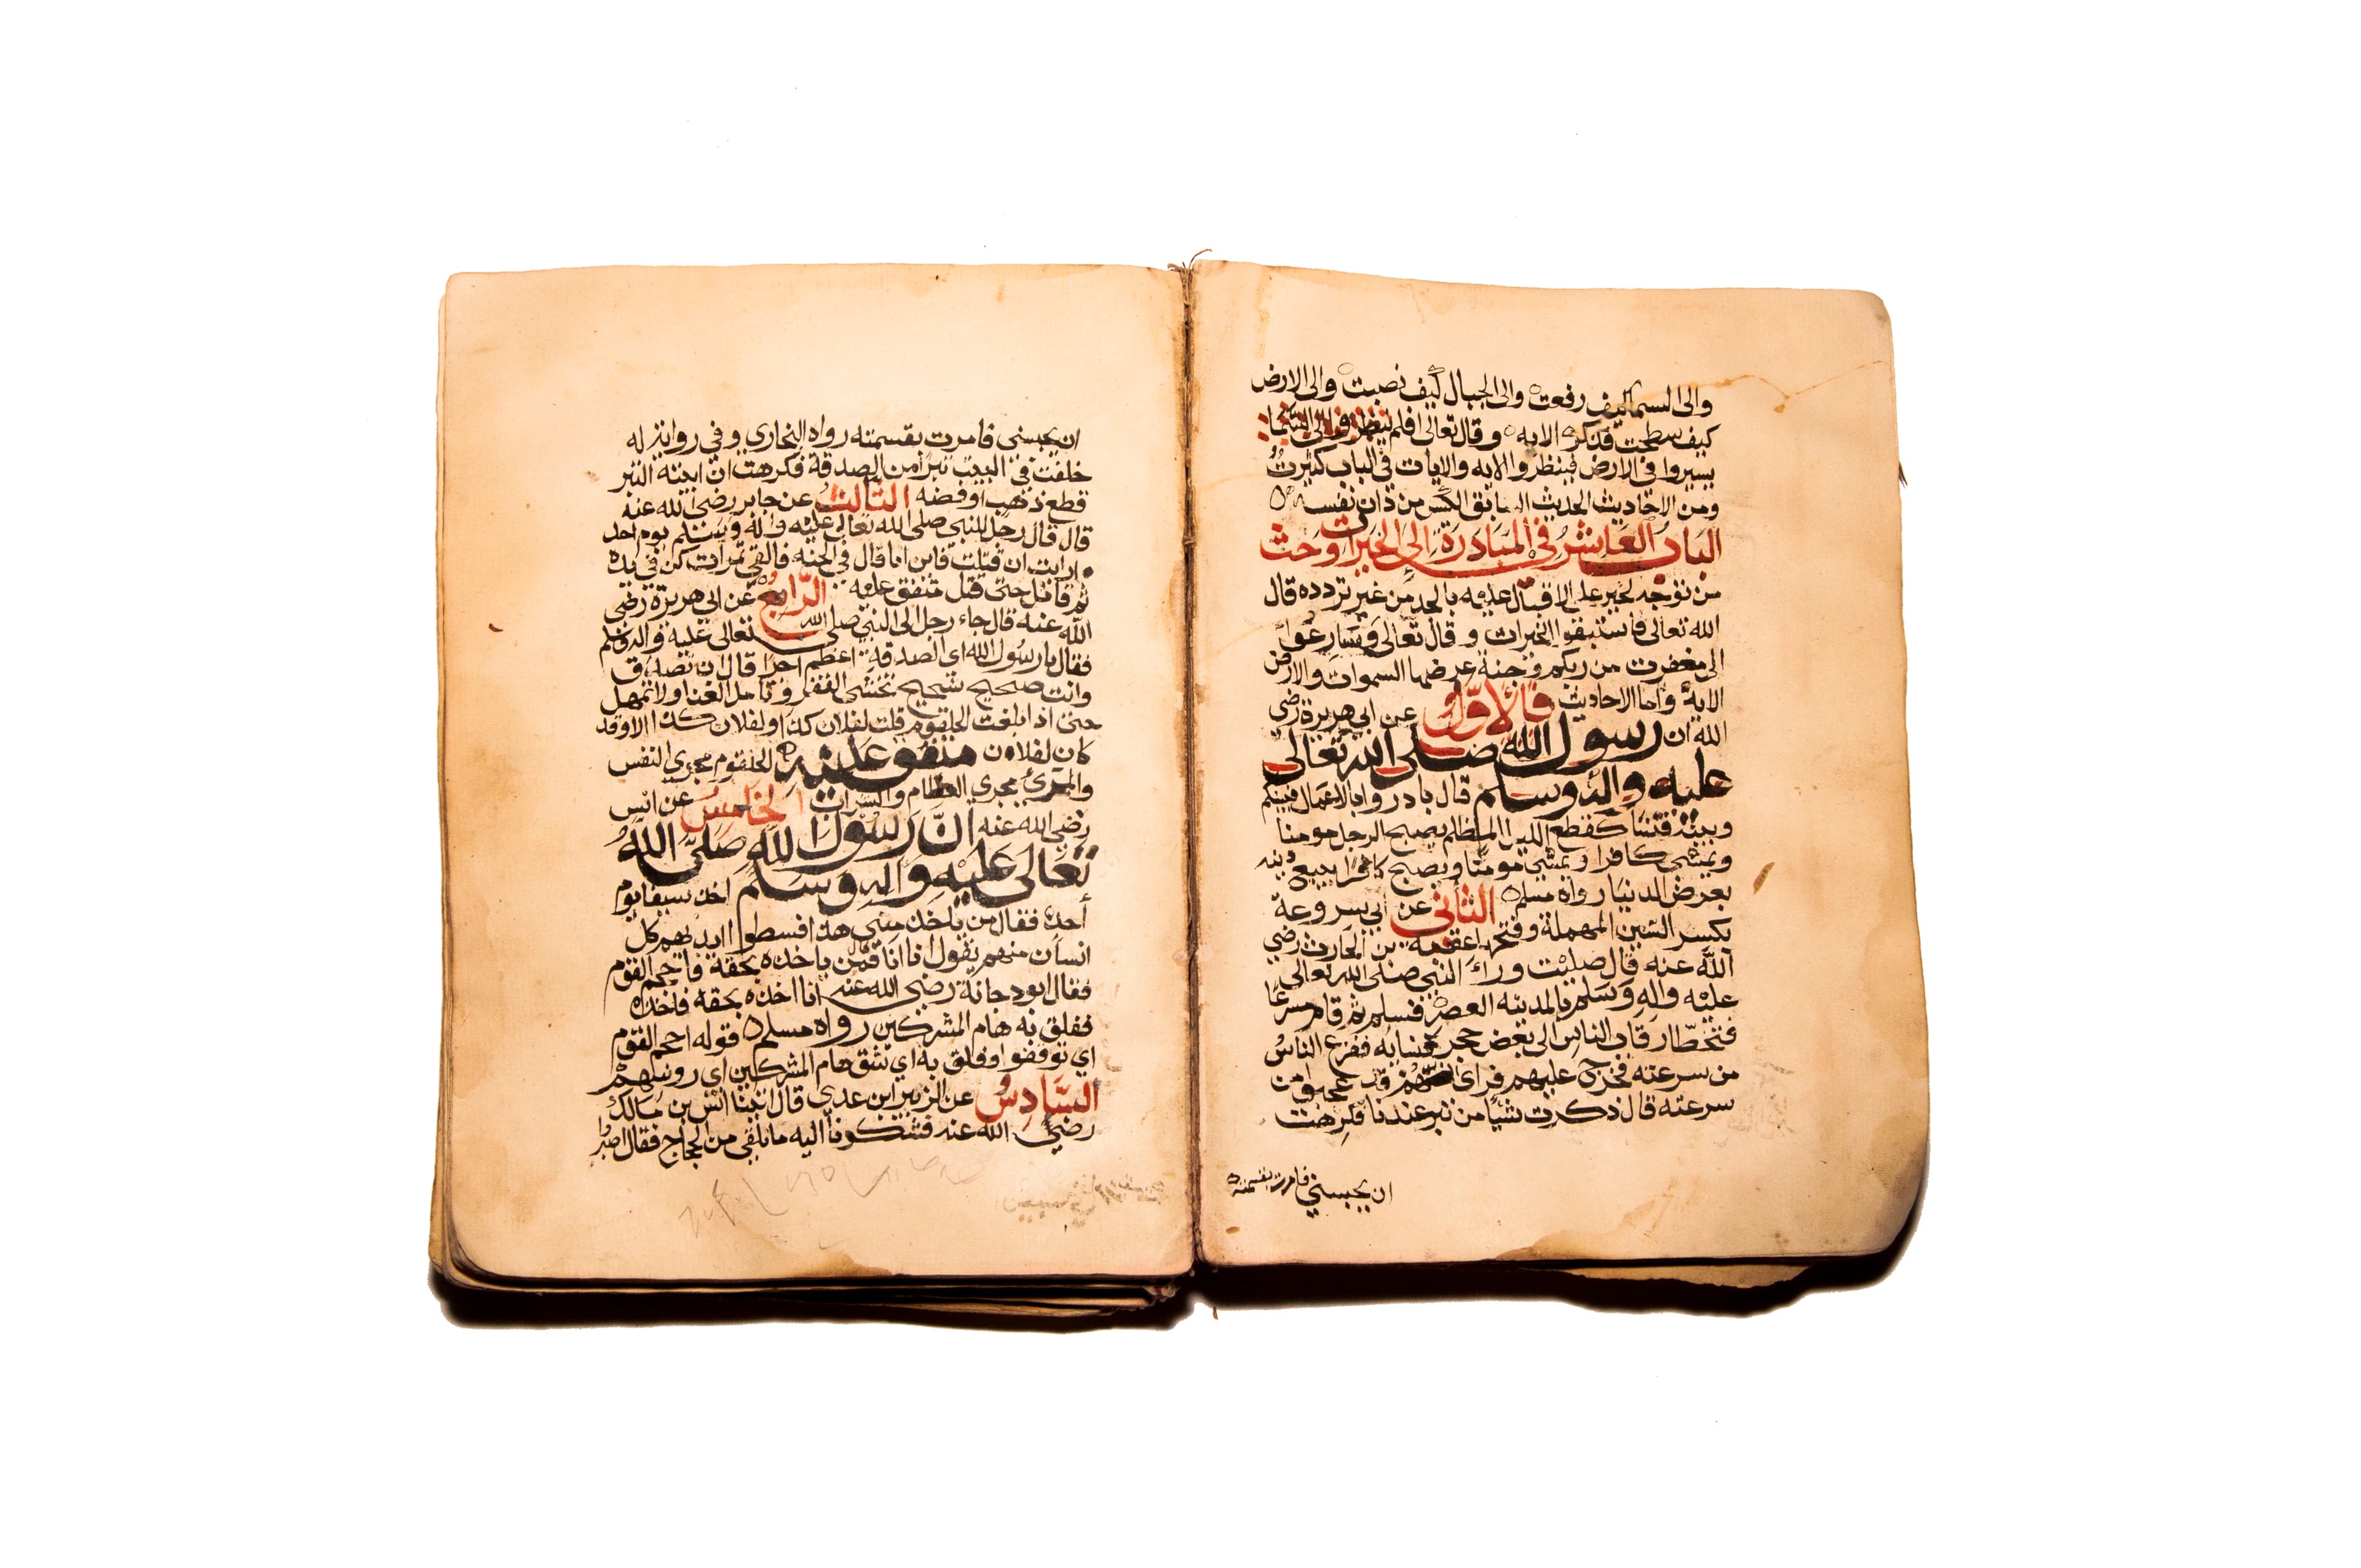 والى السما كيف رفعت والى الجبال كيف نصبت والى الارض
كيف سطحت فذكر الايه وقال تعالى افلم
يسيروا في الارض فينظروا الايه والايات في الباب كثيرة
ومن الاحاديث الحديث السابق الكيس من دان نفسه
الباب العاشر في المبادرة الى الخيرات وحث
من توجه لخير على الاقبال عليه بالجد من غير تردده قال
الله تعالى فاستبقوا الخيرات وقال تعالى وسارعوا
الى مغفرت من ربكم وجنة عرضها السموات والارض
الاية واما الاحاديث فالاول عن ابي هريرة رضي
الله ان رسول الله صلى الله تعالى
عليه واله وسلم قال بادروا بالاعمال فستكم
وبينه فتنا كقطع الليل المظلم يصبح الرجل مومنا
ويمشي كافرا ويمشي مومنا ويصبح كافرا يبيع دينه
بعرض الدنيا رواه مسلم الثاني عن ابي سروعة
بكسر السين المهملة وفتحها عقبة بن الحارث رضي
الله عنه قال صليت وراء النبي صلى الله تعالى
عليه واله وسلم بالمدينه العصر فسلم ثم قام مسرعا
فتخطا رقاب الناس الى بعض حجر نسايه ففزع الناس
من سرعته فخرج عليهم فراى انهم قد عجبوا من
سرعته قال ذكرت شيا من تبر عندنا فكرهت
ان يحبسني فامرت بقسمته
ان يحبسني فامرت بقسمته رواه البخاري وفي رواية له
خلفت في البيت تبرا من الصدقة فكرهت ان ابيته التبر
قطع ذهب او فضه الثالث عن جابر رضي الله عنه
قال قال رجل للنبي صلى الله تعالى عليه واله وسلم يوم احد
ارايت ان قتلت فاين انا قال في الجنه فالقى تمرات كن في يده
ثم قاتل حتى قتل متفق عليه الرابع عن ابي هريرة رضي
الله عنه قال جاء رجل الى النبي صلى الله تعالى عليه واله وسلم
فقال يا رسول الله اى الصدقة اعظم اجرا قال ان تصدق
وانت صحيح شحيح تخشى الفقر وتامل الغنا ولا تمهل
حتى اذا بلغت الحلقوم قلت لفلان كذا ولفلان كذا الا وقد
كان لفلان متفق عليه الحلقوم مجري النفس
والمرئ مجري الطعام والشراب الخامس عن انس
رضي الله عنه ان رسول الله صلى الله
تعالى عليه واله وسلم اخذ سيفا يوم
احد فقال من ياخذ مني هذا فبسطوا ايديهم كل
انسان منهم يقول انا انا قال فمن ياخذه بحقه فاحجم القوم
فقال ابو دجانة رضي الله عنه انا اخذه بحقه فاخذه
ففلق به هام المشركين رواه مسلم قوله احجم القوم
اي توقفوا وفلق به اي شق هام المشركين اي روسهم
السادس عن الزبير ابن عدي قال اتينا انس بن مالك
رضي الله عنه فشكونا اليه ما نلقى من الحجاج فقال اصبروا